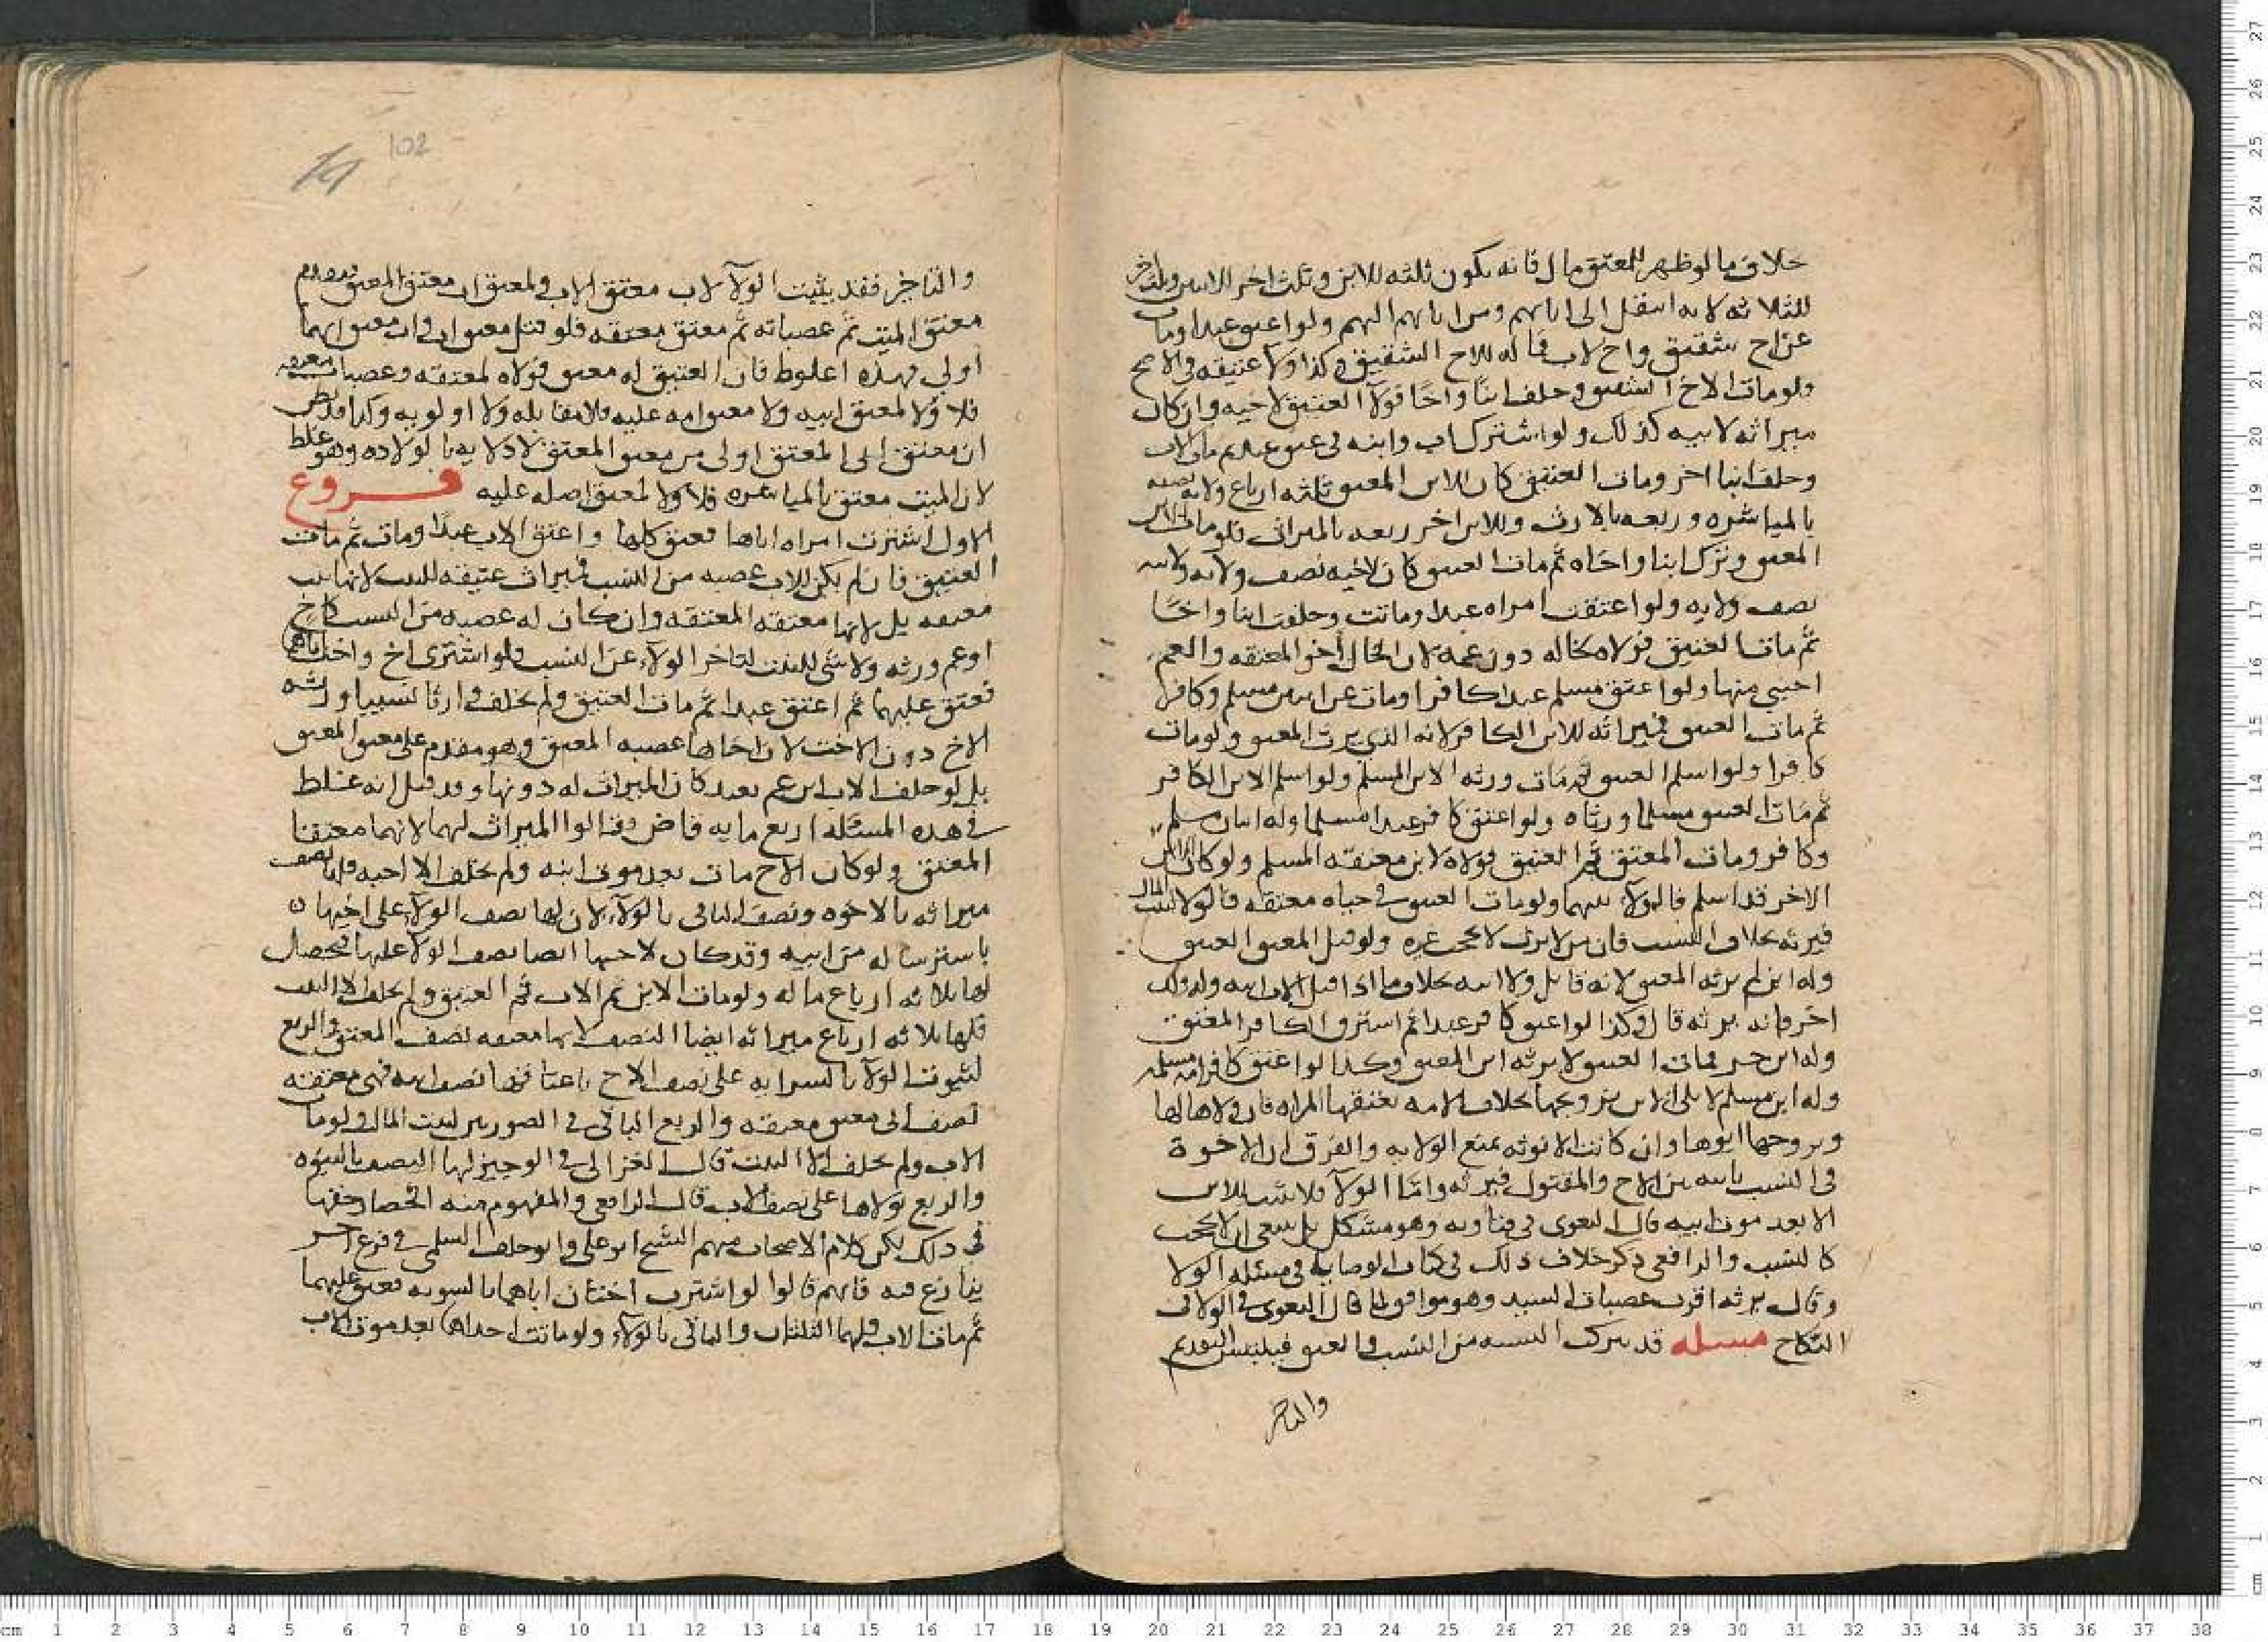 خلاف ما لو ظهر للمعتق مال فانه يكون ثلثه للابن وثلث اخر للابن
للثلاثة لانه انتقل الى اباهم ومن اباهم اليهم ولو اعتق عبدا ومات
عن اخ شقيق واخ لاب فماله للاخ الشقيق وكذا ولاء عتيقه في الاصح
ولو مات الاخ الشقيق وخلف ابنًا واخًا فولاء العتيق لاخيه وان كان
ميراثه لابيه كذلك ولو اشترك اب وابنه في عتق عبد ثم مات الاب
وخلف ابنا اخر ومات العتيق كان للابن المعتق ثلثه ارباع ولائه نصفه
بالمباشره وربعه بالارث وللابن اخر ربعه بالميراث فلو مات الابن
المعتق وترك ابنا واخاه ثم مات العتيق كان لاخيه نصف ولائه ولابنه
نصف ولايه ولو اعتقت امراه عبدا وماتت وخلفت ابنا واخًا
ثم مات العتيق فولاه لخاله دون عمه لان الخال اخو المعتقه والعم
اجنبي منها ولو اعتق مسلم عبدا كافرا ومات عن ابنين مسلم وكافر
ثم مات العتيق فميراثه للابن الكافر لانه الذي يرث المعتق ولو مات
كافرا ولو اسلم العتيق ثم مات ورثه الابن المسلم ولو اسلم الابن الكافر
ثم مات العتيق مسلما ورثاه ولو اعتق كافر عبدا مسلما وله ابنان مسلم
وكافر ومات المعتق ثم العتيق فولاه لابن معتقه المسلم ولو كان الابن
الاخر قد اسلم فالولاء بينهما ولو مات العتيق في حياه معتقه فالولاء لبيت المال
فيرثه بخلاف النسب فان من لا يرث لا يحجب غيره ولو قتل المعتق العتيق
وله ابن لم يرثه المعتق لانه قاتل ولا ابنه بخلاف ما اذا قتل الاب ابنه وله ولد
اخر فانه يرثه قال وكذا لو اعتق كافر عبدا ثم استرق الكافر المعتق
وله ابن حر فمات العتيق لا يرثه ابن المعتق وكذا لو اعتق كافر امه مسلمه
وله ابن مسلم لا يلى الابن تزويجها بخلاف الامه تعتقها المراه فان ولاها لها
ويزوجها ابوها وان كانت الانوثه تمنع الولايه والفرق ان الاخوة
في النسب ثابته بين الاخ والمقتول فيرثه واما الولاء فلا يثبت للابن
الا بعد موت ابيه قال البغوى في فتاويه وهو مشكل بل ينبغى ان لا يحجب
كالنسب والرافعى ذكر خلاف ذلك في كتاب الوصايه في مسئله الولا
وقال يرثه اقرب عصبات السيد وهو موافق لما قال البغوى في الولاء في
النكاح مسله قد يتركب النسبه من النسب والعتق فيلتبس التقديم
والتاخر
والتاخر فقد يثبت الولاء لاب معتق الاب ولمعتق اب معتق المعتق
معتق الميت ثم عصباته ثم معتق معتقه فلو قيل معتق اب واب معتق ايهما
اولى فهذه اغلوط فان العتيق له معتق فولاه لمعتقه وعصبات معتقه
فلا ولاء لمعتق ابيه ولا معتق امه عليه فلا مقابله ولا اولويه وكذا قد يظن
ان معتق ابى المعتق اولى من معتق المعتق لادلايه بالولاده وهو غلط
لان الميت معتق بالمباشره فلا ولا لمعتق اصله عليه فروع
الاول اشترت امراه اباها فعتق كلها واعتق الاب عبدًا ومات ثم مات
العتيق فان لم يكن للاب عصبه من النسب فميراث عتيقه للبنت لا لانها بنت
معتقه بل لانها معتقه المعتقه وان كان له عصبه من النسب كاخ
او عم ورثه ولا شى للبنت لتاخر الولاء عن النسب ولو اشترى اخ واخت اباهما
فعتق عليهما ثم اعتق عبدا ثم مات العتيق ولم يخلف وارثا لنسبيا ورثه
الاخ دون الاخت لان اخاها عصبه المعتق وهو مقدم على معتق المعتق
بل لو خلف الاب ابن عم بعيد كان الميراث له دونها وقد قيل انه غلط
في هذه المسئله اربع مايه قاض وقالوا الميراث لهما لانهما معتقا
المعتق ولو كان الاخ مات بعد موت ابنه ولم يخلف الا اخته فلها نصف
ميراثه بالاخوه ونصف الباقى بالولاء لان لها نصف الولاء على اخيها
له من ابيه وقد كان لاخيها ايضا نصف الولاء عليها فحصل
لها ثلاثه ارباع ماله ولو مات الابن ثم الاب ثم العتيق ولم يخلف الا البنت
فلها ثلاثه ارباع ميراثه ايضا النصف لانها معتقه نصف المعتق والربع
لثبوت الولاء بالسرايه على نصف الاخ باعتاقها نصف ابيه فهى معتقه
نصف ابى معتق معتقه والربع الباقى في الصورتين لبيت المال ولو مات
الاب ولم يخلف الا البنت قال الغزالى في الوجيز لها النصف بالبنوه
والربع بولاها على نصف الاب قال الرافعى والمفهوم منه انحصار حقها
في ذلك لكن كلام الاصحاب منهم الشيخ ابو على وابو خلف السلمى في فرع اخر
ينازع فيه فانهم قالوا لو اشترت اختان اباهما بالسويه فعتق عليهما
ثم مات الاب فلهما الثلثان والباقى بالولاء ولو ماتت احداهما بعد موت الاب
102